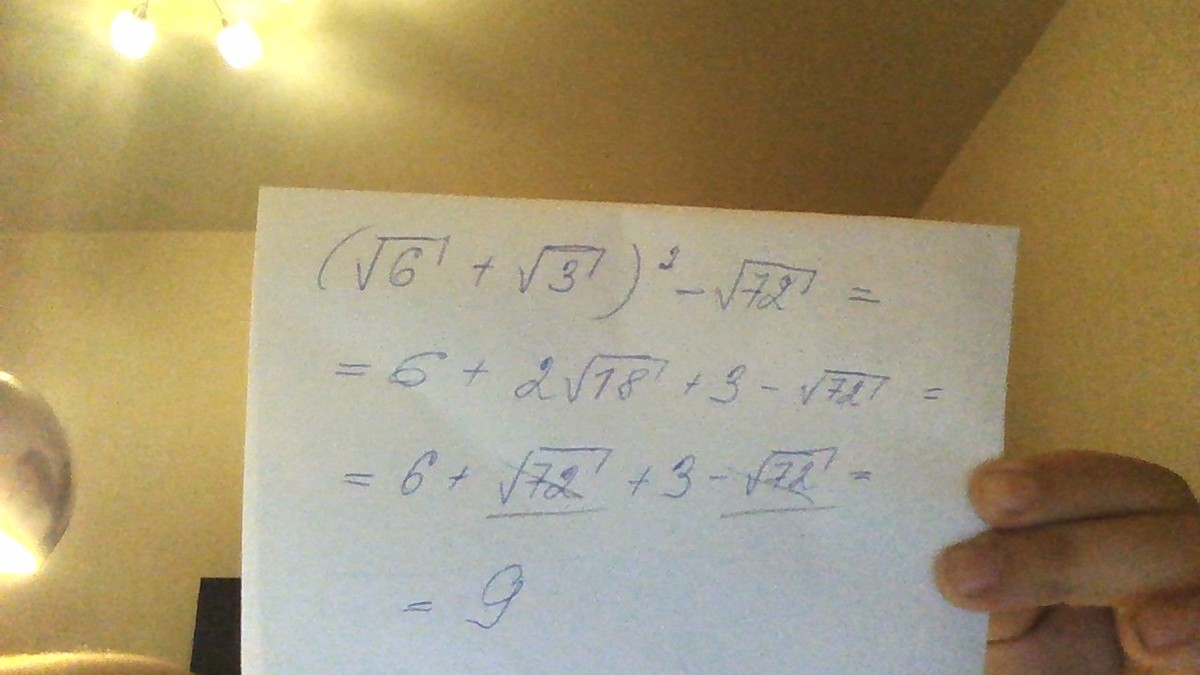 (√6 + √3)² - √72 =
= 6 + 2√18 + 3 - √72 =
= 6 + √72 + 3 - √72 =
= 9